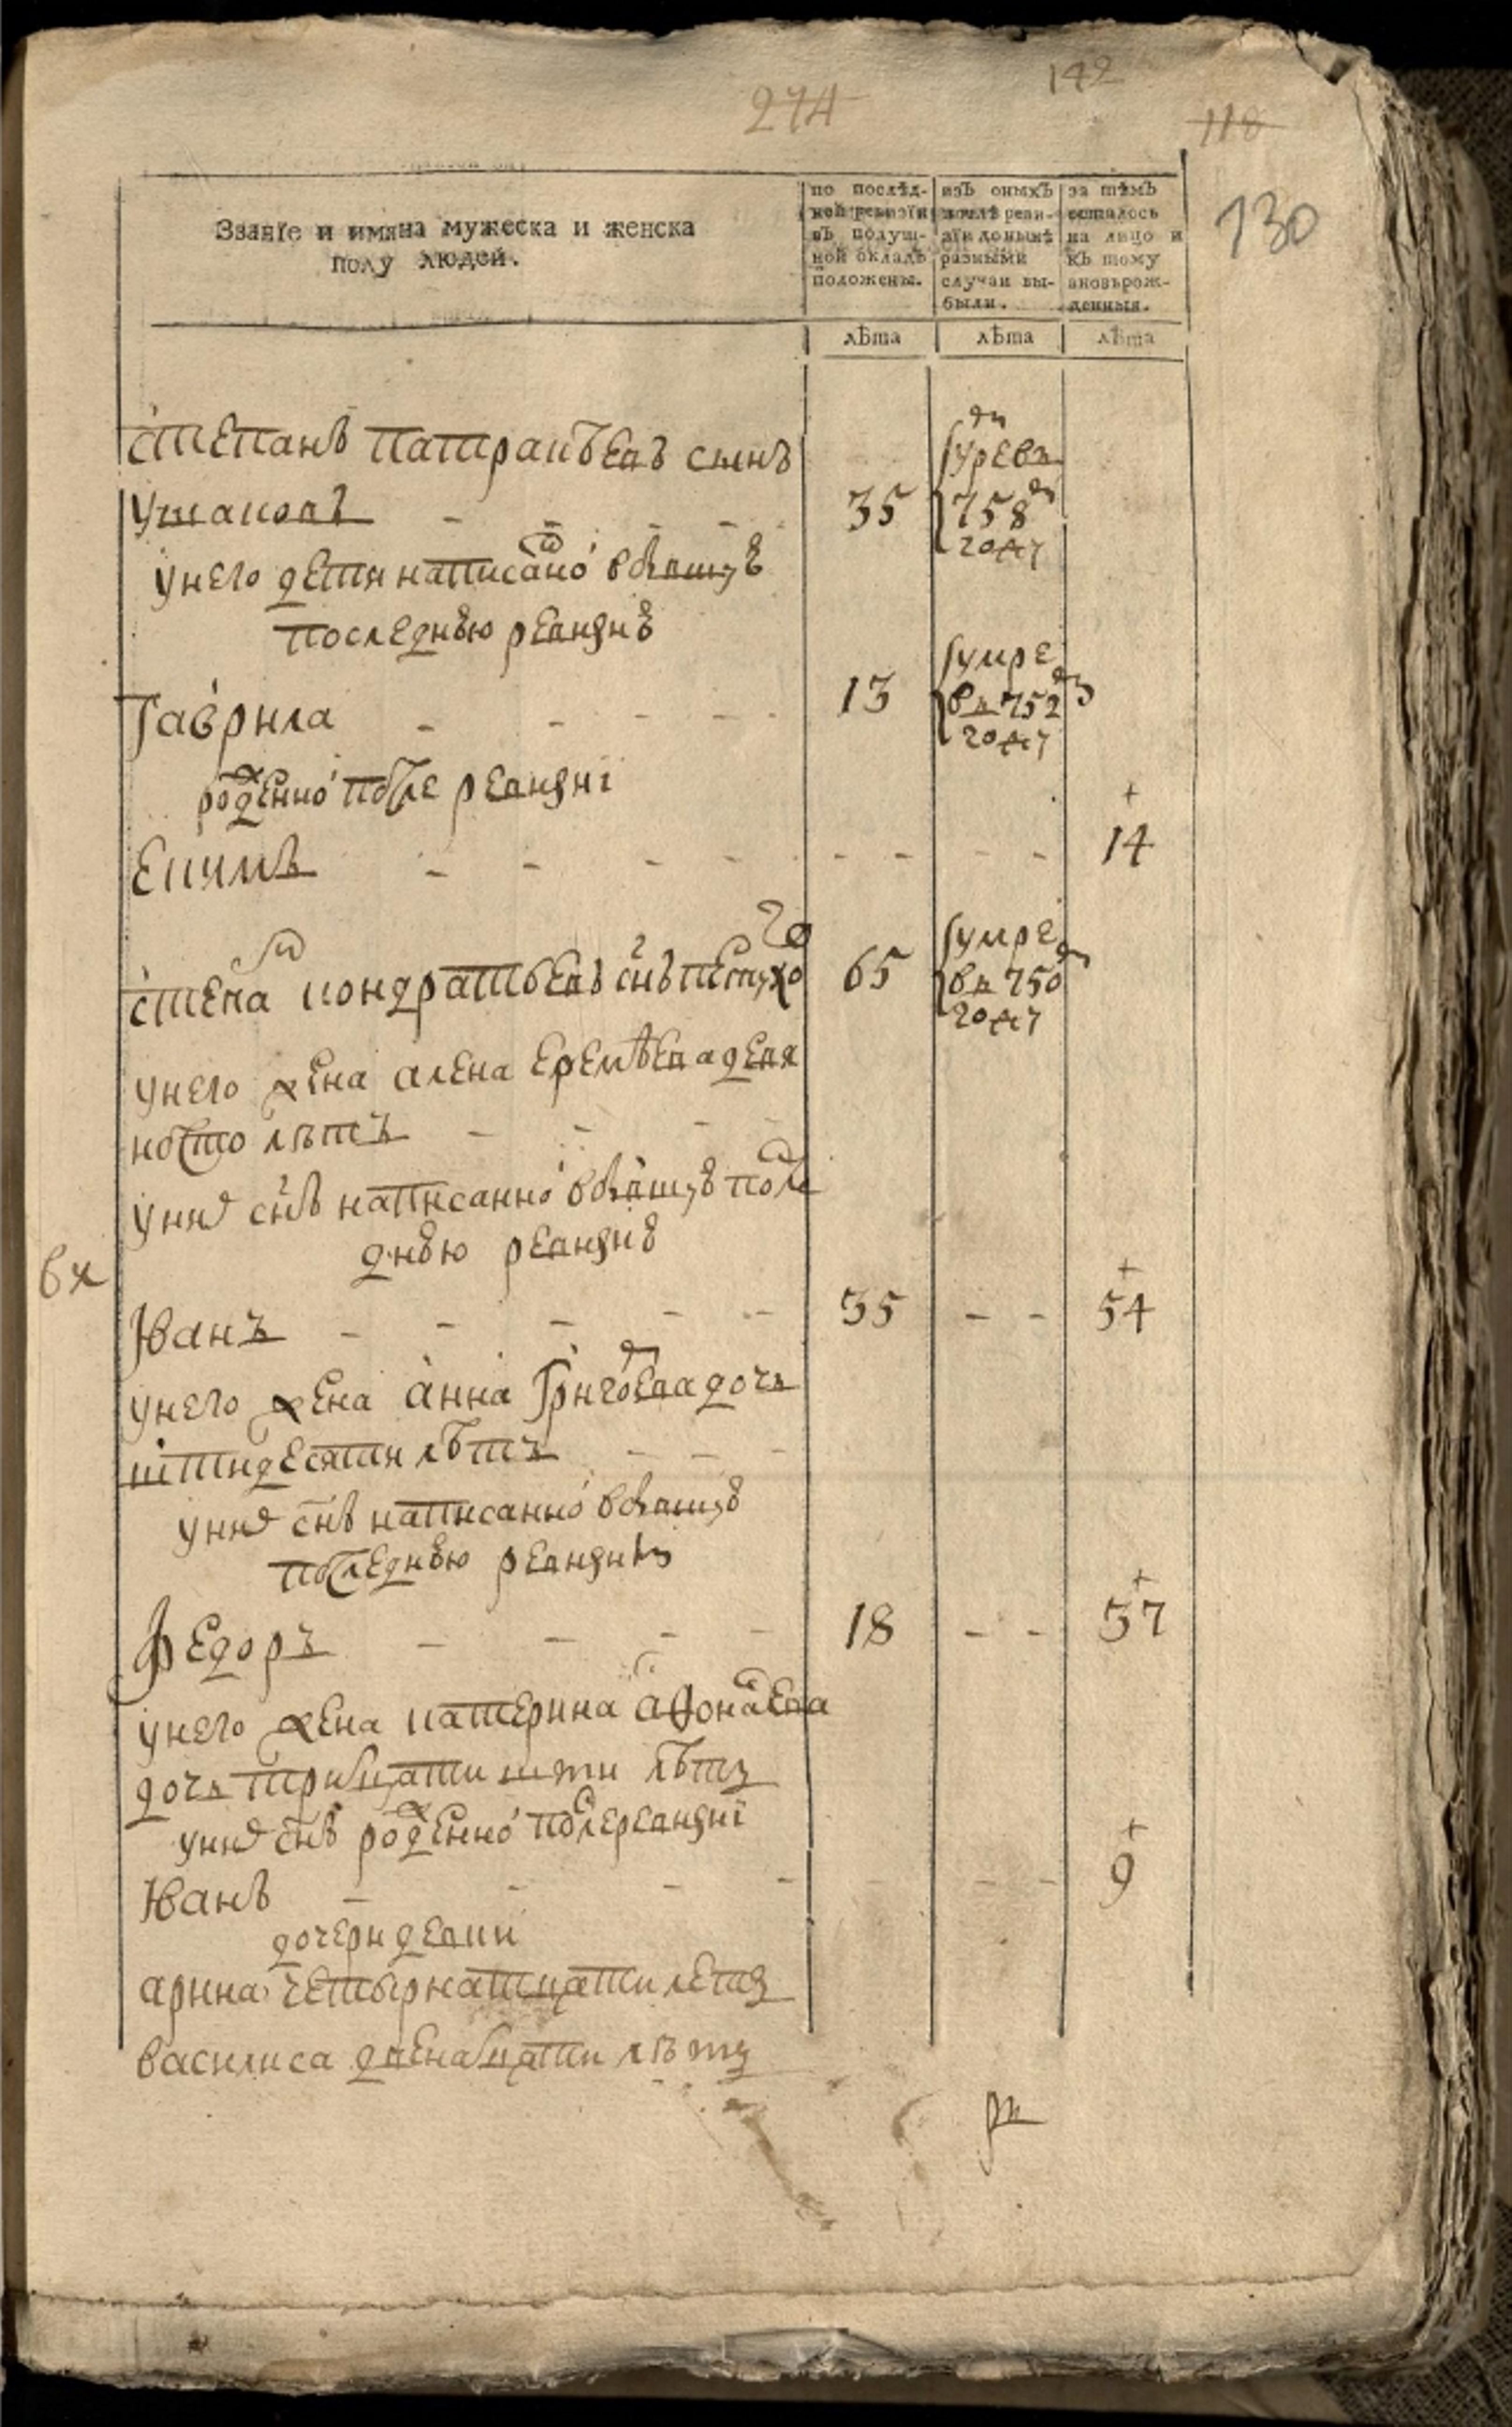 274
142
118
130
Званїе и имяна мужеска и женска
полу людей.
по послѣд-
ней ревизїи
въ подуш-
ной окладъ
положены.
изъ оныхъ
послѣ реви-
зїи донынѣ
разными
случаи вы-
были.
за тѣмъ
осталось
на лицо и
къ тому
вновьрож-
денныя.
лѣта
лѣта
лѣта
степанъ сынъ
ушаковъ - - - - 35 758 году
унего дети написанно
последнюю ревизиѣ
Гаврила - - - - 13 умре в 752 году
рожденно после ревизиї
Екимъ - - - - - - - - 14
степа кондратьевъ снъ петухо 65 умре в 750 году
унего жена алена еремѣева девя
носто лѣтъ - - - -
уних снъ написанно в после
днѣю ревизиѣ
вх
Иванъ - - - - - 35 - - 54
унего жена анна Григоева дочь
штидесяти лѣтъ - - -
уних снъ написанно
последнѣю ревизиѣ
Федоръ - - - - 18 - - 37
унего жена катерина афонасева
дочь трицати шти лѣтъ
уних снъ рожденно после ревизиї
Иванъ - - - - - - - 9
дочери девки
арина четырнатцати летъ
василиса двенацати лѣтъ